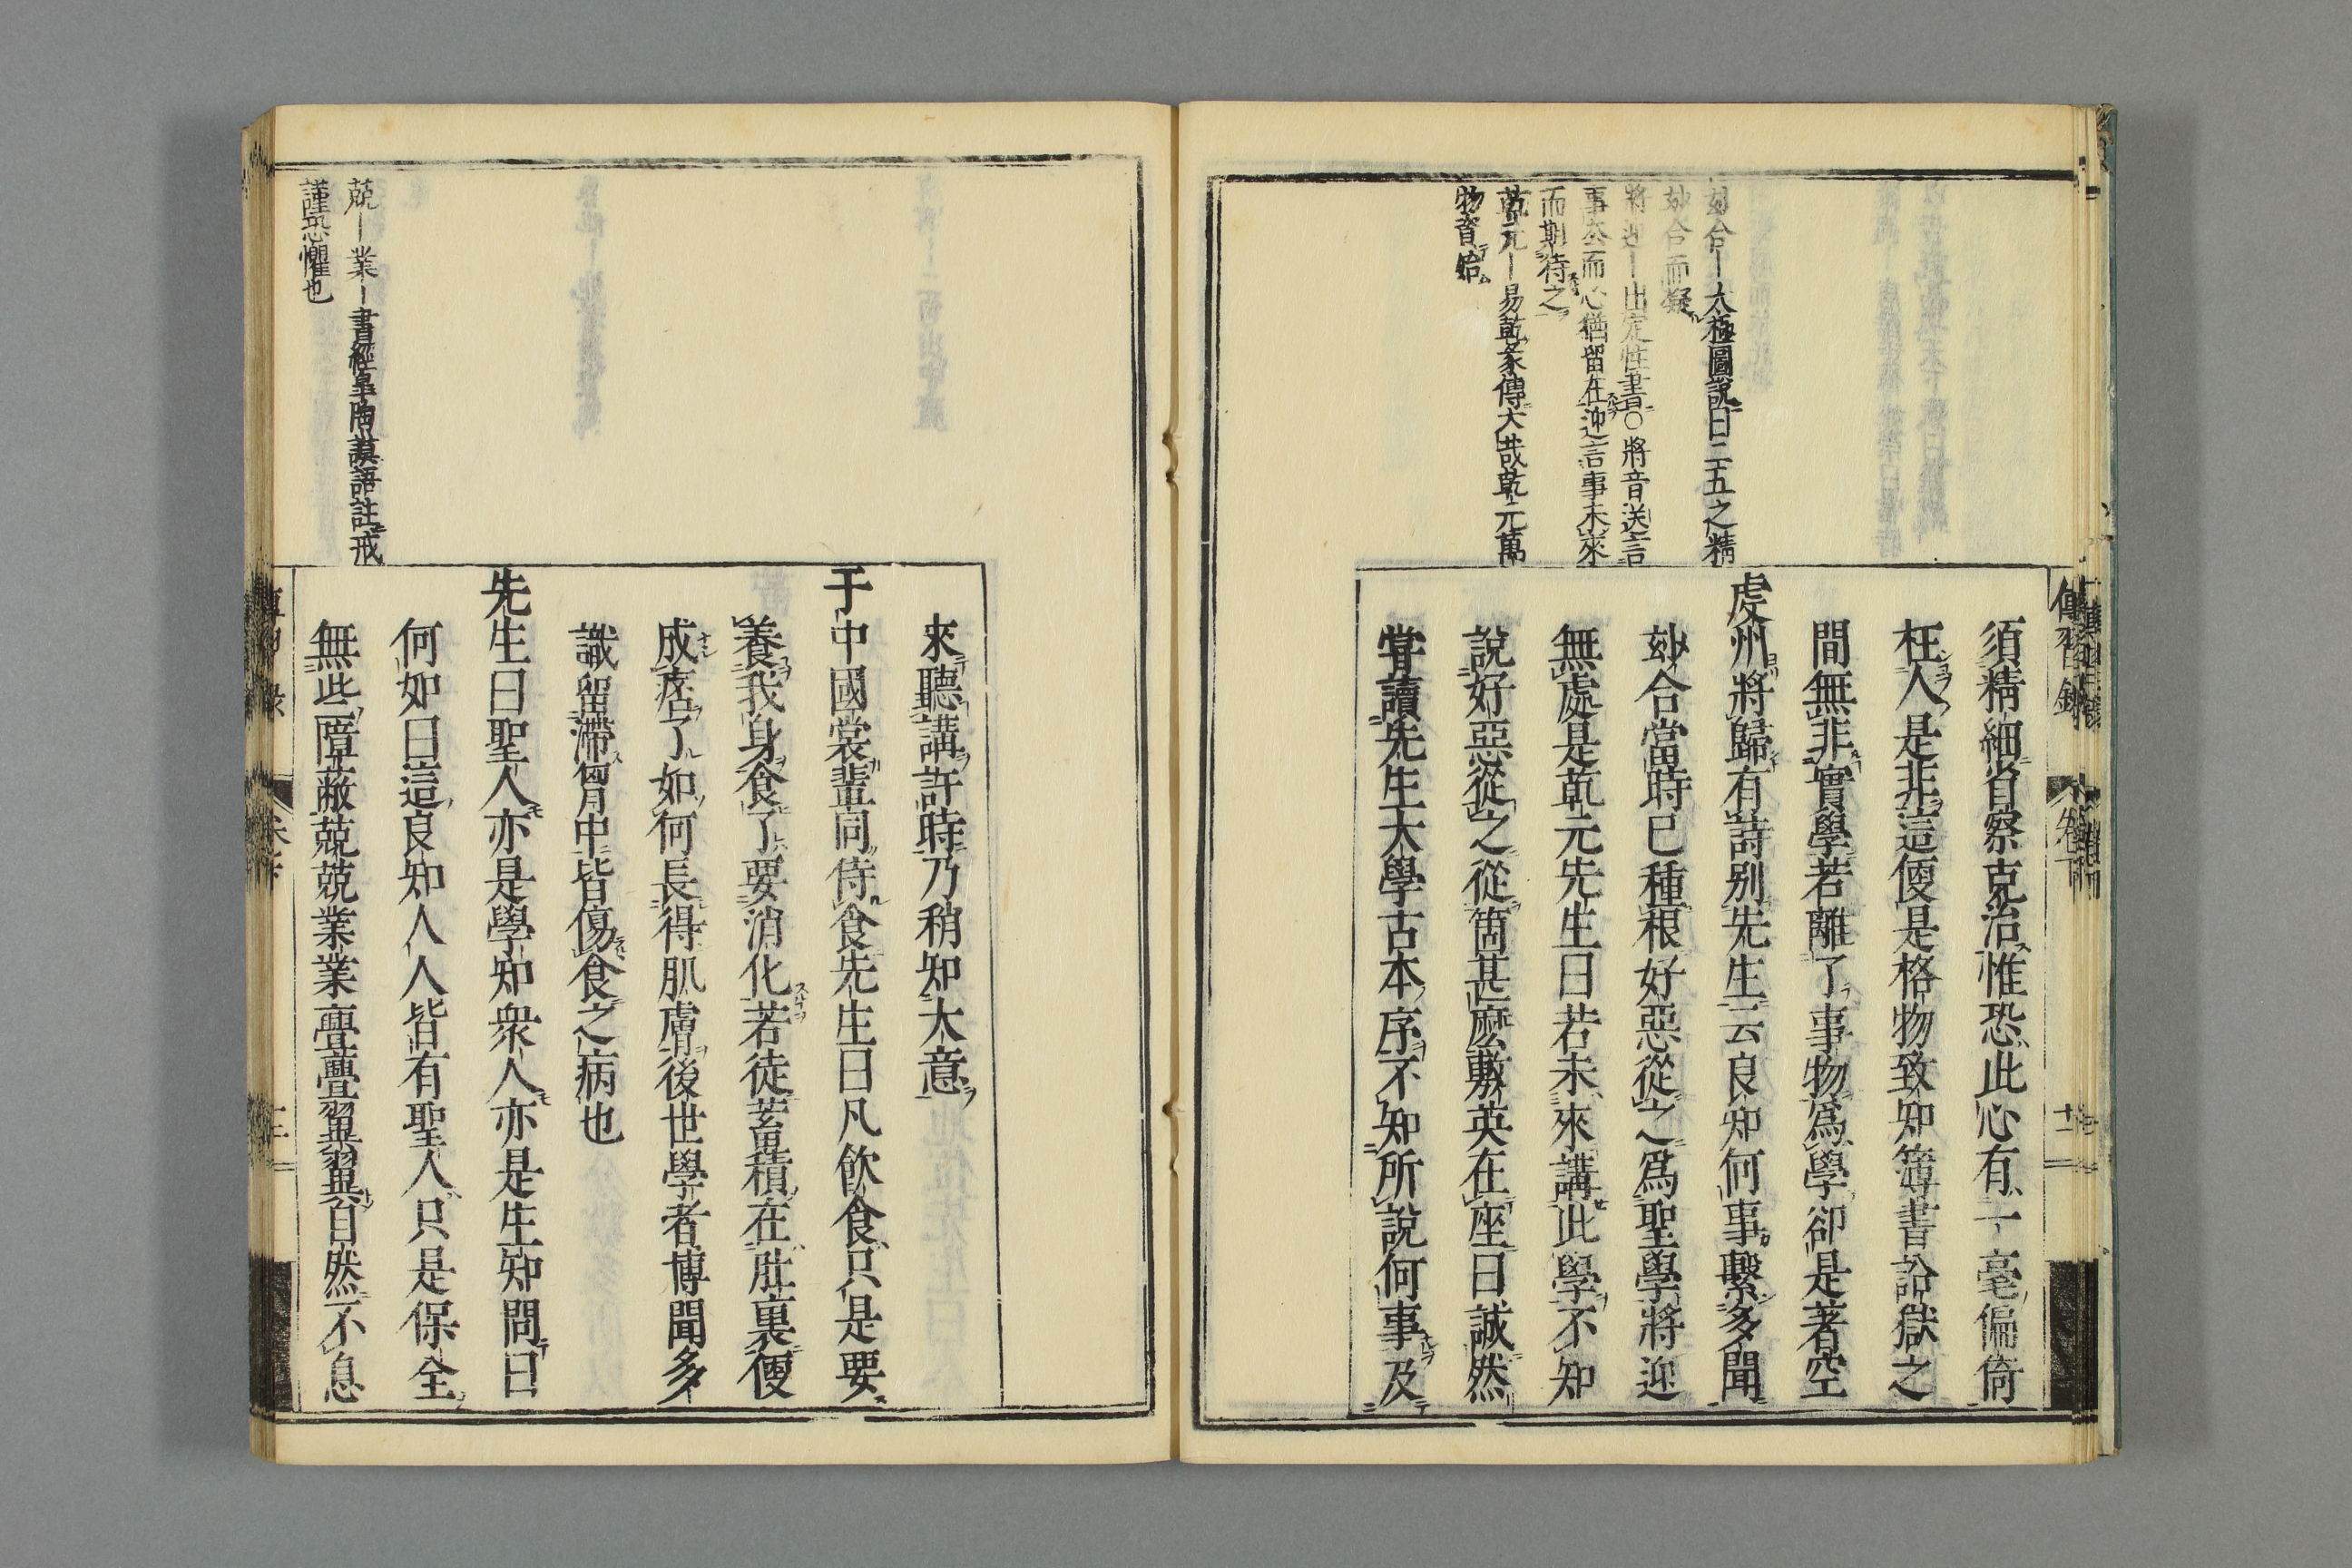 妙合ー太極圖說曰二五之精
妙合而凝
將迎ー出定性書○將音送言
事去而心猶留在迎言事未來
而期待之
乾元ー易乾彖傳大哉乾元萬
物資始
須精細省察克治惟恐此心有一毫偏倚
枉人是非這便是格物致知簿書訟獄之
間無非實學若離了事物爲學卻是著空
虔州將歸有詩別先生云良知何事繫多聞
妙合當時已種根好惡從之爲聖學將迎
無處是乾元先生曰若未來講此學不知
說好惡從之從箇甚麼敷英在座曰誠然
嘗讀先生大學古本序不知所說何事及
來聽講許時乃稍知大意
于中國裳輩同侍食先生曰凡飲食只是要
養我身食了要消化若徒蓄積在肚裏便
成痞了如何長得肌膚後世學者博聞多
識留滯胷中皆傷食之病也
先生曰聖人亦是學知衆人亦是生知問曰
何如曰這良知人人皆有聖人只是保全
無此障蔽兢兢業業亹亹翼翼自然不息
兢ー業ー書經皐陶謨語註戒
謹恐懼也